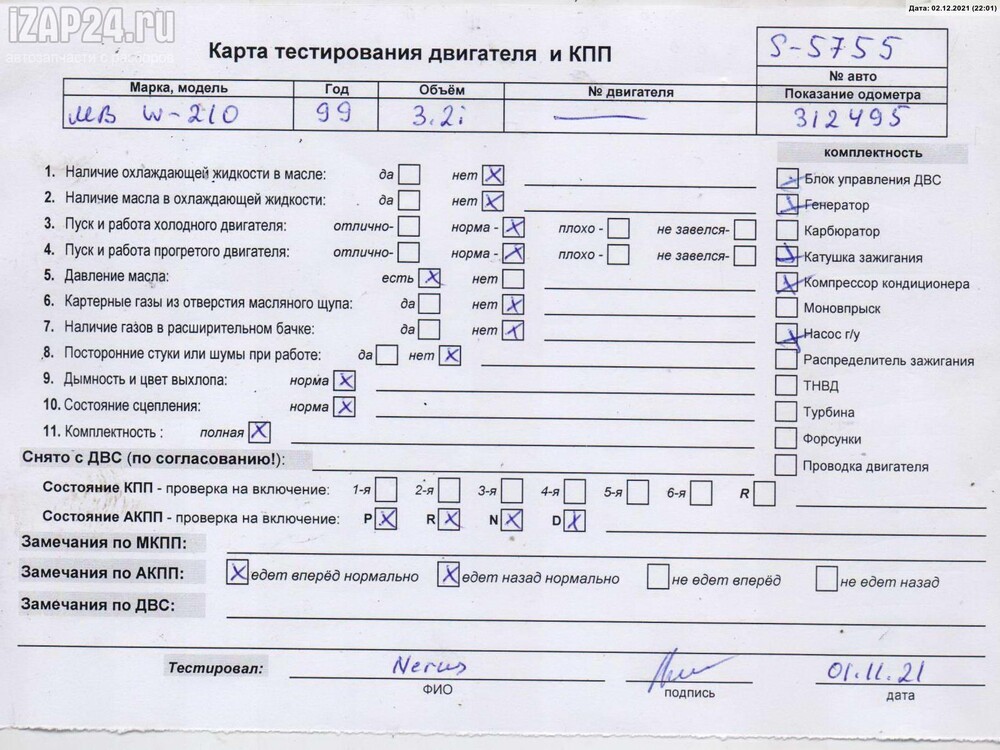 Дата: 02.12.2021 (22:01)
iZAP24.ru
автозапчасти с разборов
Карта тестирования двигателя и КПП
S-5755
№ авто
Марка, модель Год Объём № двигателя Показание одометра
МВ W-210 99 3.2i 312495
комплектность
1. Наличие охлаждающей жидкости в масле: да нет
Блок управления ДВС
2. Наличие масла в охлаждающей жидкости: да нет
Генератор
3. Пуск и работа холодного двигателя: отлично- норма - плохо - не завелся-
Карбюратор
4. Пуск и работа прогретого двигателя: отлично- норма - плохо - не завелся-
Катушка зажигания
5. Давление масла: есть нет
Компрессор кондиционера
6. Картерные газы из отверстия масляного щупа: да нет
Моновпрыск
7. Наличие газов в расширительном бачке: да нет
Насос г/у
8. Посторонние стуки или шумы при работе: да нет
Распределитель зажигания
9. Дымность и цвет выхлопа: норма
ТНВД
10. Состояние сцепления: норма
Турбина
11. Комплектность : полная
Форсунки
Снято с ДВС (по согласованию!):
Проводка двигателя
Состояние КПП - проверка на включение: 1-я 2-я 3-я 4-я 5-я 6-я R
Состояние АКПП - проверка на включение: P R N D
Замечания по МКПП:
Замечания по АКПП: едет вперёд нормально едет назад нормально не едет вперёд не едет назад
Замечания по ДВС:
Тестировал: Nerus 01.11.21
ФИО подпись дата